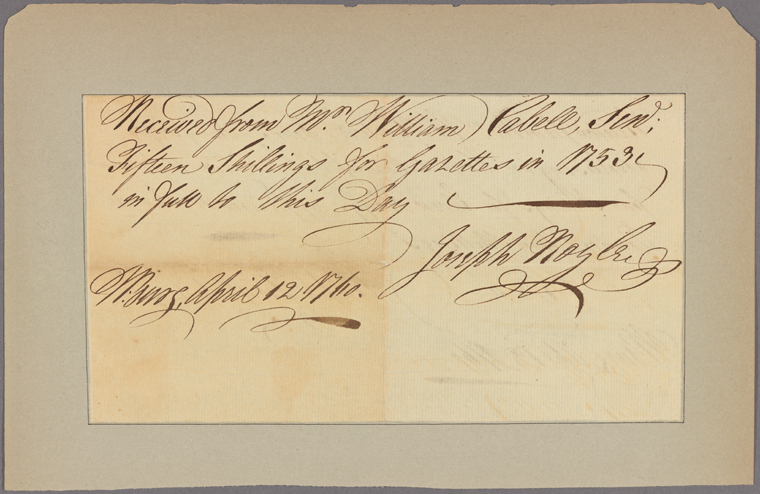 Received from Mr. William Cabell, Senr.
Fifteen Shillings for Gazettes in 1753
in full to this Day
Joseph Royle
W.burg, April 12 1760.